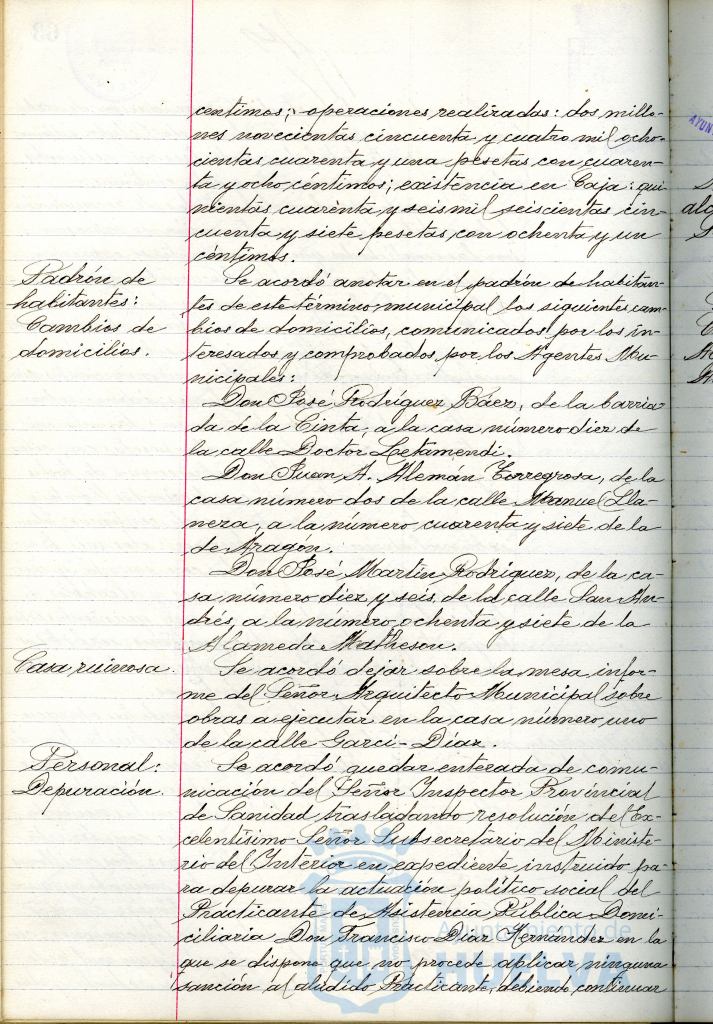 centimos; operaciones realizadas: dos millo-
nes novecientas cincuenta y cuatro mil ocho-
cientas cuarenta y una pesetas con cuaren-
ta y ocho céntimos; existencia en Caja: qui-
nientas cuarenta y seis mil seiscientas cin-
cuenta y siete pesetas con ochenta y un
céntimos.
Padrón de
habitantes:
Cambios de
domicilios.
Se acordó anotar en el padrón de habitan-
tes de este término municipal los siguientes cam-
bios de domicilios, comunicados por los in-
teresados y comprobados por los Agentes Mu-
nicipales:
Don José Rodríguez Báez, de la barria-
da de la Cinta, a la casa número diez de
la calle Doctor Letamendi.
Don Juan A. Alemán Torregrosa, de la
casa número dos de la calle Manuel Lla-
nera, a la número cuarenta y siete de la
de Aragón.
Don José Martin Rodriguez, de la ca-
sa número diez y seis de la calle San An-
drés, a la número ochenta y siete de la
Alameda Matheson.
Casa ruinosa.
Se acordó dejar sobre la mesa infor-
me del Señor Arquitecto Municipal sobre
obras a ejecutar en la casa número uno
de la calle Garci-Díaz.
Personal:
Depuración.
Se acordó quedar enterada de comu-
nicación del Señor Inspector Provincial
de Sanidad trasladando resolución del Ex-
celentísimo Señor Subsecretario del Ministe-
rio del Interior en expediente instruido pa-
ra depurar la actuación político social del
Practicante de Asistencia Pública Domi-
ciliaria Don Francisco Díaz Hernández en la
que se dispone que no procede aplicar ninguna
sanción al aludido Practicante, debiendo continuar
Ayuntamiento de
HUELVA